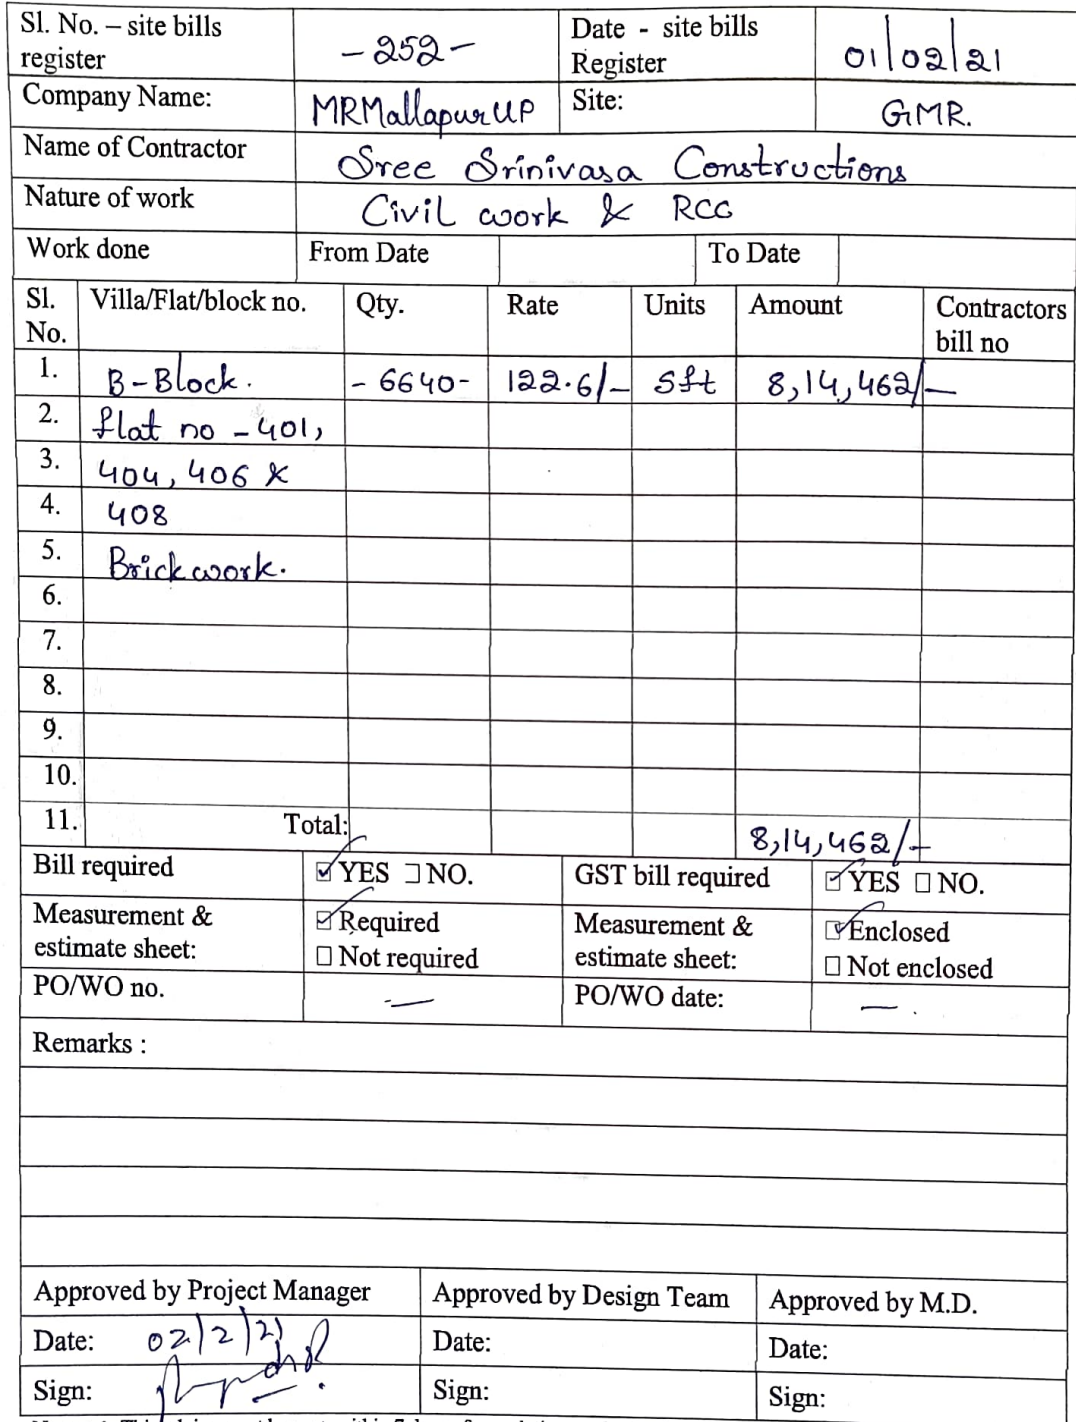 Sl. No. – site bills register -252- Date - site bills Register 01/02/21
Company Name: MRMallapurUP Site: GMR.
Name of Contractor Sree Srinivasa Constructions
Nature of work Civil work & RCC
Work done From Date To Date
Sl. No. Villa/Flat/block no. Qty. Rate Units Amount Contractors bill no
1. B-Block. -6640- 122.6/- Sft 8,14,462/-
2. flat no -401,
3. 404, 406 &
4. 408
5. Brickwork.
6.
7.
8.
9.
10.
11. Total: 8,14,462/-
Bill required ☑ YES ☐ NO. GST bill required ☑ YES ☐ NO.
Measurement & estimate sheet: ☑ Required ☐ Not required Measurement & estimate sheet: ☑ Enclosed ☐ Not enclosed
PO/WO no. — PO/WO date: — .
Remarks :
Approved by Project Manager Approved by Design Team Approved by M.D.
Date: 02/2/21 Date: Date:
Sign: Sign: Sign: